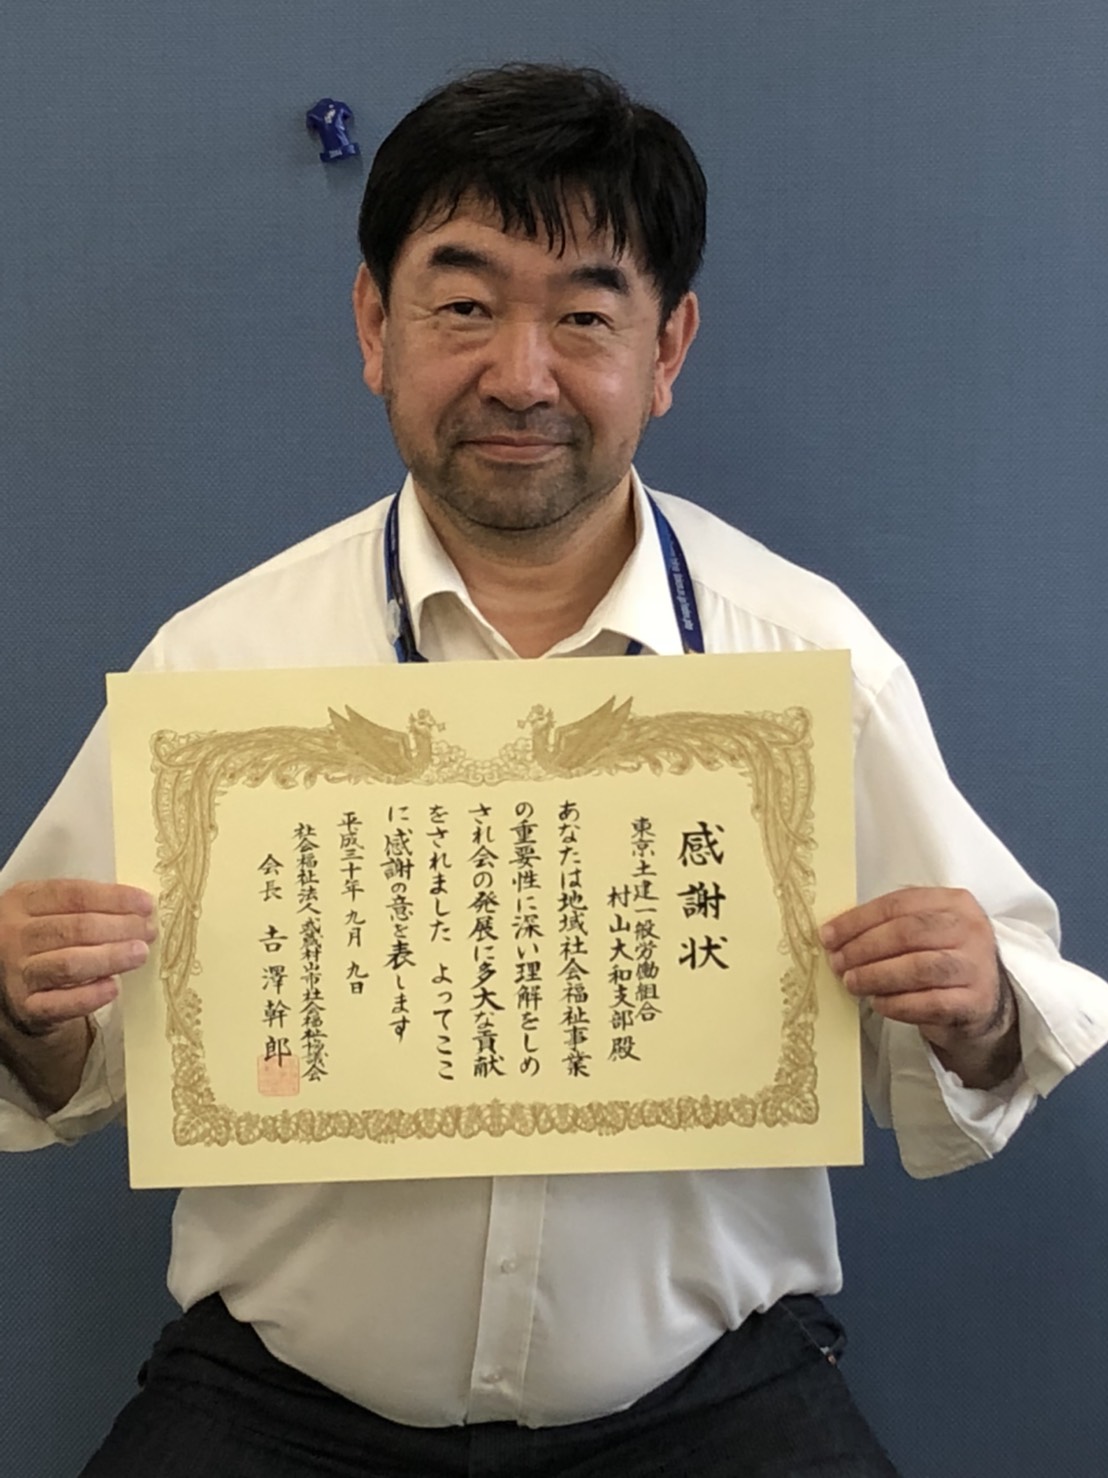 感謝状
東京土建一般労働組合
村山大和支部殿
あなたは地域社会福祉事業
の重要性に深い理解をしめ
され会の発展に多大な貢献
をされました よってここ
に感謝の意を表します
平成三十年 九月 九日
社会福祉法人武蔵村山市社会福祉協議会
会長 吉澤幹郎